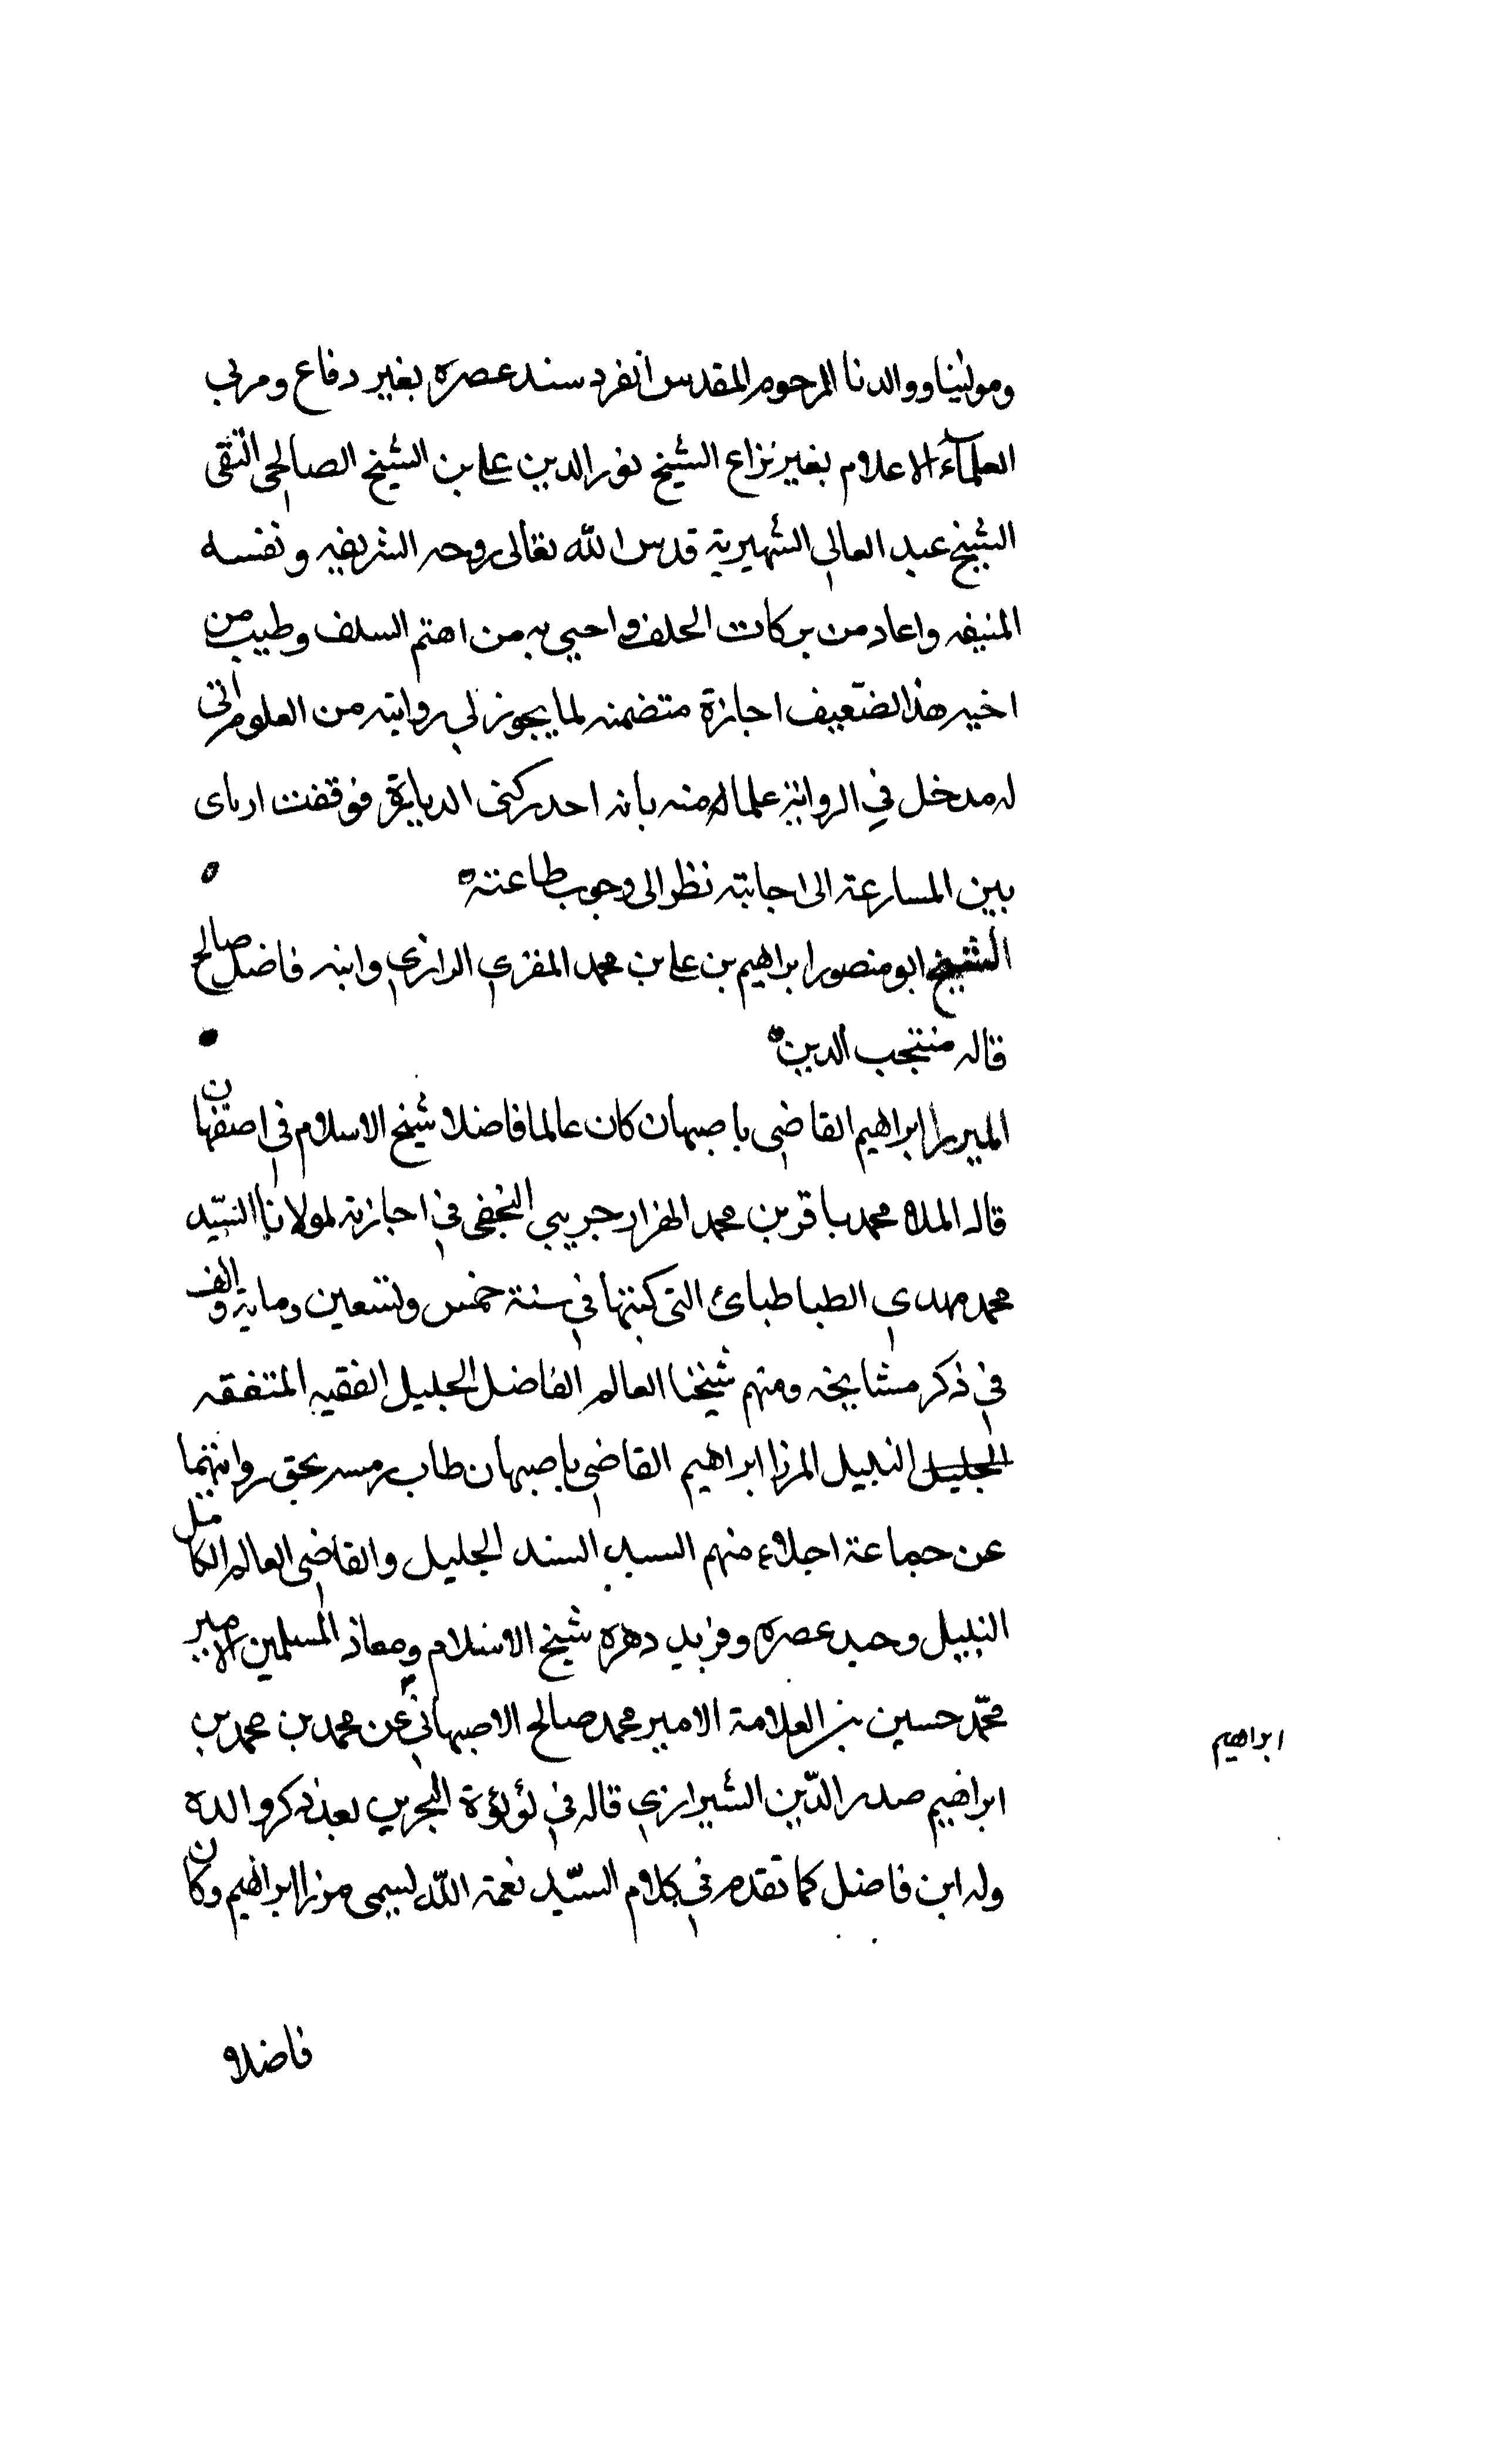 ومولينا ووالدنا المرحوم المقدس انفرد سند عصره بغير دفاع ومربى
العلمآء الاعلام بغير نزاع الشيخ نور الدين على بن الشيخ الصالحى التقى
الشيخ عبد العالى الشهيرية قدس الله تعالى روحه الشريفه ونفسه
المنيفه واعاد من بركات الخلف واحيى به من اهتم السلف وطيب من
اخيه هذا الضّعيف اجازة متضمنه لما يجوز لى روايته من العلوم التى
له مدخل في الرواية علما له منه بانه احد ركنى الدباية فوقفت ارباى
بين المسارعة الى اجابته نظرا الى وجوب طاعته
الشيخ ابو منصور ابراهيم بن على بن محمد المقرى الرازي وابنه فاضل صالح
قاله منتجب الدين
الميررا ابراهيم القاضى باصبهان كان عالما فاضلا شيخ الاسلام في اصفهان
قاله الملا محمد باقر بن محمد الهزارجريبي النجفى في اجازته لمولانا السيّد
محمد مهدي الطباطبائ التى كتبتها في سنة خمس وتسعين وماية والف
في ذكر مشايخه ومنهم شيخنا العالم الفاضل الجليل الفقيه المتفقه
الجليل النبيل المرزا ابراهيم القاضى باصبهان طاب رمسه بحق روايتهما
عن جماعة اجلاء منهم السيد السند الجليل والقاضى العالم الكامل
النبيل وحيد عصره وفريد دهره شيخ الاسلام ومعاذ المسلمين الامير
محمّد حسين بن العلامة الامير محمد صالح الاصبهاني عن محمد بن محمد بن
ابراهيم
ابراهيم صدر الدّين الشيرازي قاله في لؤلؤة البحرين بعد ذكر والده
وله ابن فاضل كما تقدم في كلام السيّد نعمة اللّه يسمى مرزا ابراهيم وكان
فاضلا